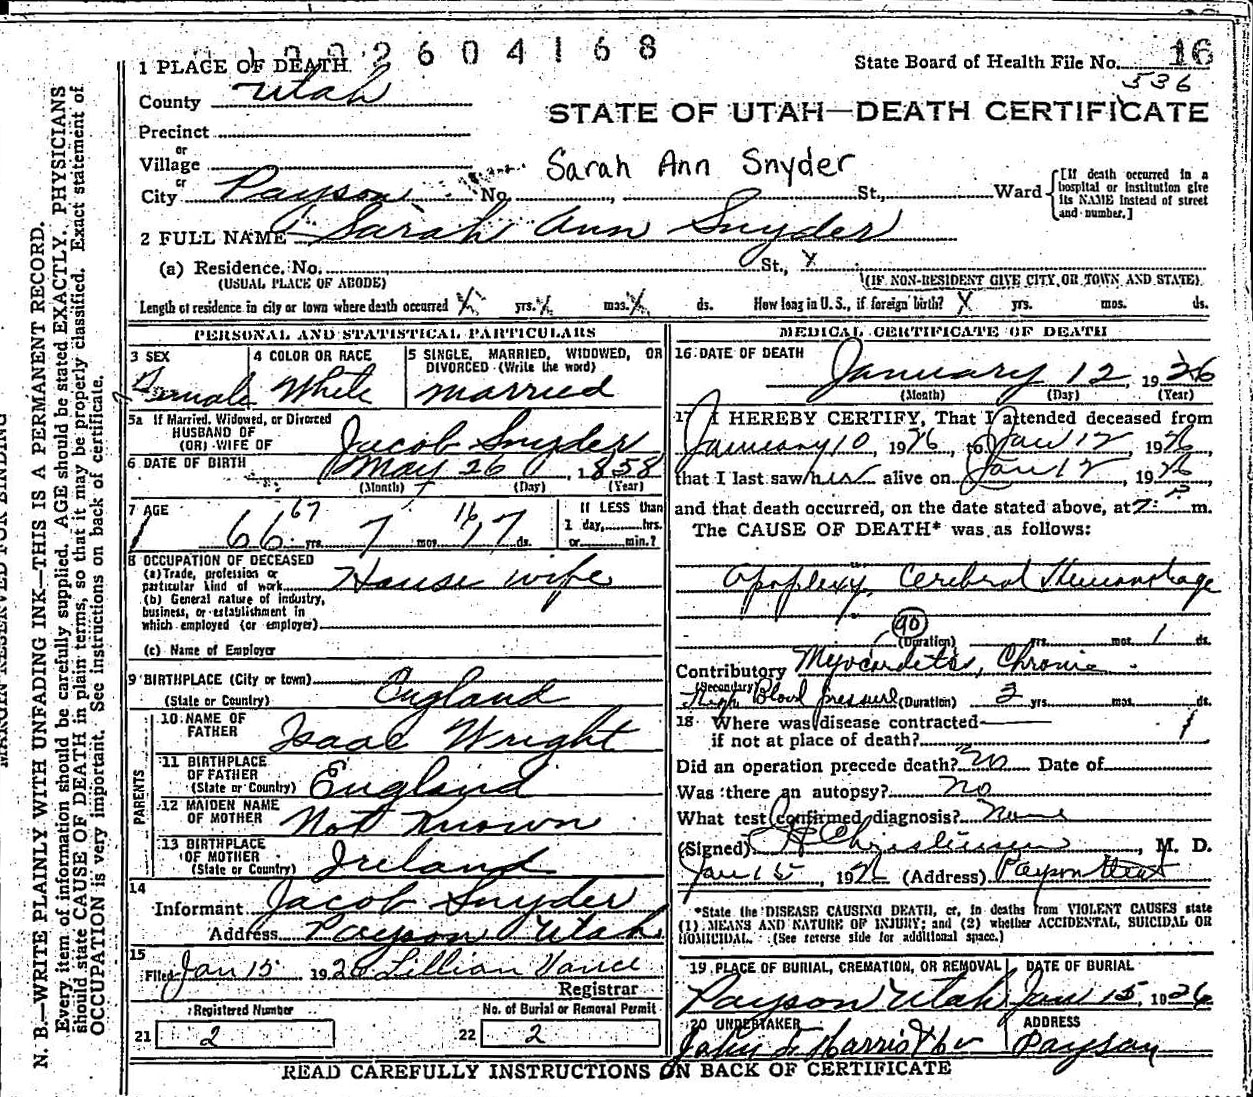 2604168
State Board of Health File No. 16
536
1 PLACE OF DEATH
County Utah
STATE OF UTAH—DEATH CERTIFICATE
Precinct
or
Village
Sarah Ann Snyder
or
City Payson No. , St., Ward
[If death occurred in a hospital or institution give its NAME instead of street and number.]
2 FULL NAME Sarah Ann Snyder
(a) Residence. No. St., X
(USUAL PLACE OF ABODE) (IF NON-RESIDENT GIVE CITY OR TOWN AND STATE)
Length of residence in city or town where death occurred X yrs. X mos. X ds. How long in U.S., if foreign birth? X yrs. mos. ds.
PERSONAL AND STATISTICAL PARTICULARS
3 SEX
Female
4 COLOR OR RACE
White
5 SINGLE, MARRIED, WIDOWED, OR DIVORCED (Write the word)
Married
5a If Married, Widowed, or Divorced
HUSBAND OF
(OR) WIFE OF Jacob Snyder
6 DATE OF BIRTH May 26, 1858
(Month) (Day) (Year)
7 AGE
67 16
66 yrs. 7 mos. 17 ds.
If LESS than
1 day, hrs.
or min.?
8 OCCUPATION OF DECEASED
(a) Trade, profession or
particular kind of work House wife
(b) General nature of industry,
business, or establishment in
which employed (or employer)
(c) Name of Employer
9 BIRTHPLACE (City or town)
(State or Country) England
PARENTS
10 NAME OF
FATHER Isaac Wright
11 BIRTHPLACE
OF FATHER
(State or Country) England
12 MAIDEN NAME
OF MOTHER Not Known
13 BIRTHPLACE
OF MOTHER
(State or Country) Ireland
14
Informant Jacob Snyder
Address Payson Utah
15
Filed Jan 15 1926 Lillian Vance
Registrar
Registered Number
21 2
No. of Burial or Removal Permit
22 2
MEDICAL CERTIFICATE OF DEATH
16 DATE OF DEATH
January 12, 1926
(Month) (Day) (Year)
17 I HEREBY CERTIFY, That I attended deceased from
January 10, 1926, to Jan 12, 1926
that I last saw her alive on Jan 12, 1926
and that death occurred, on the date stated above, at 7 P m.
The CAUSE OF DEATH* was as follows:
Apoplexy, Cerebral Hemorrhage
90
(Duration) yrs. mos. 1 ds.
Contributory Myocarditis, Chronic
(Secondary) High Blood pressure (Duration) 2 yrs. mos. ds.
18 Where was disease contracted
if not at place of death?
Did an operation precede death? no Date of
Was there an autopsy? no
What test confirmed diagnosis? None
(Signed) Christensen, M. D.
Jan 15, 1926 (Address) Payson Utah
*State the DISEASE CAUSING DEATH, or, in deaths from VIOLENT CAUSES state
(1) MEANS AND NATURE OF INJURY; and (2) whether ACCIDENTAL, SUICIDAL OR
HOMICIDAL. (See reverse side for additional space.)
19 PLACE OF BURIAL, CREMATION, OR REMOVAL
Payson Utah
DATE OF BURIAL
Jan 15, 1926
20 UNDERTAKER
John Harris
ADDRESS
Payson
READ CAREFULLY INSTRUCTIONS ON BACK OF CERTIFICATE
N. B.—WRITE PLAINLY WITH UNFADING INK—THIS IS A PERMANENT RECORD.
Every item of information should be carefully supplied. AGE should be stated EXACTLY. PHYSICIANS
should state CAUSE OF DEATH in plain terms, so that it may be properly classified. Exact statement of
OCCUPATION is very important. See instructions on back of certificate.